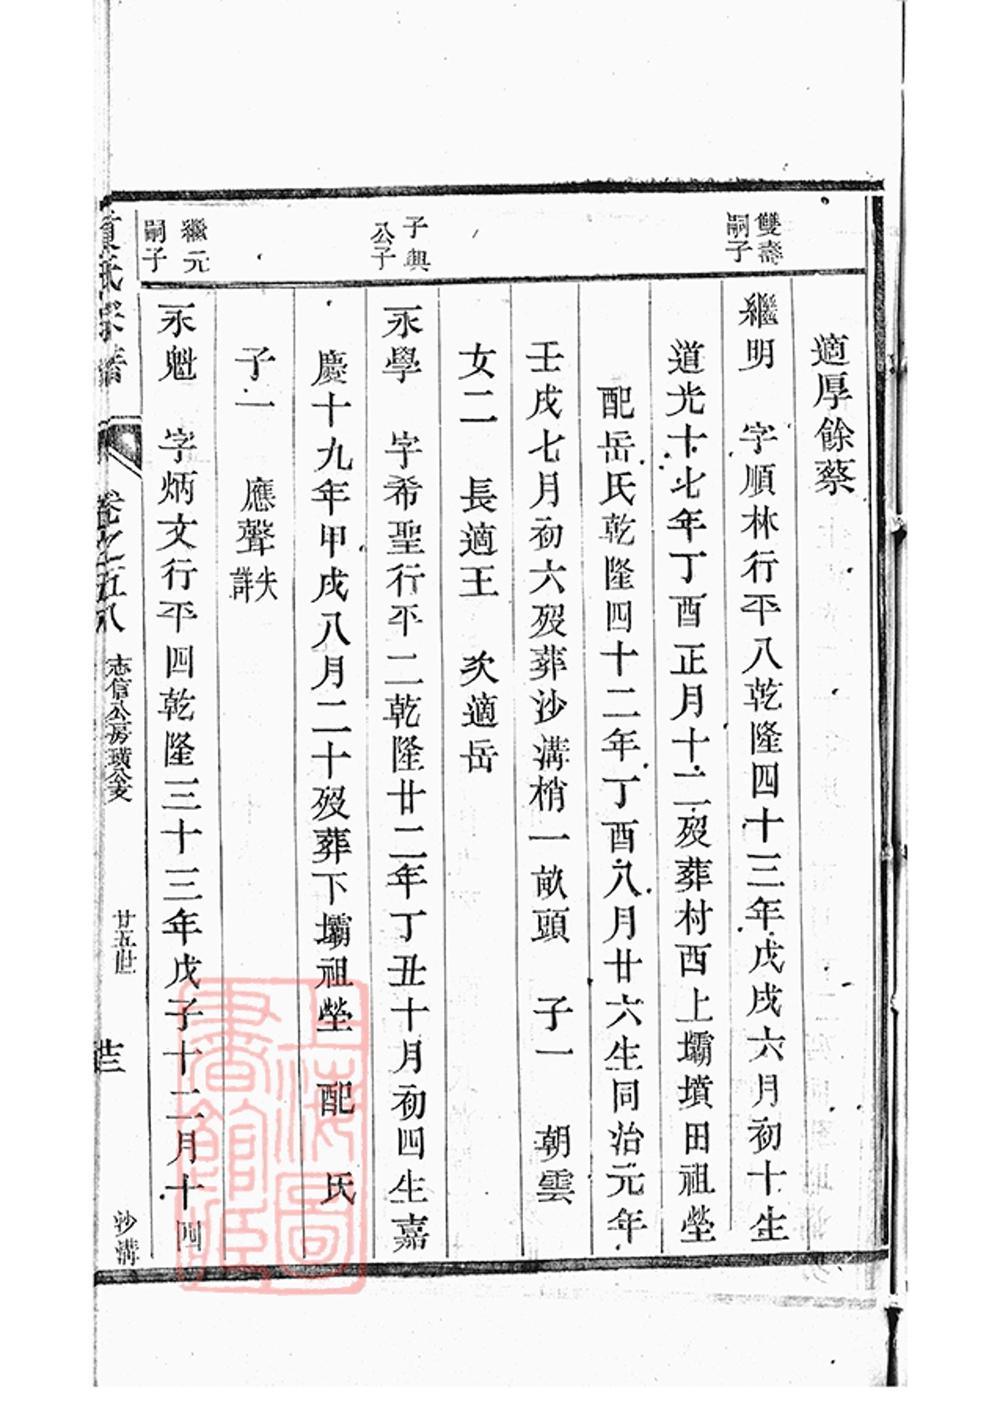 適厚餘蔡
雙壽
嗣子
繼明 字順林行平八乾隆四十三年戊戌六月初十生
道光十七年丁酉正月十二歿葬村西上壩墳田祖塋
配岳氏乾隆四十二年丁酉八月廿六生同治元年
壬戌七月初六歿葬沙溝梢一畝頭 子一 朝雲
女二 長適王 次適岳
子與
公子
永學 字希聖行平二乾隆廿二年丁丑十月初四生嘉
慶十九年甲戌八月二十歿葬下壩祖塋 配 氏
子一 應聲失詳
繼元
嗣子
永魁 字炳文行平四乾隆三十三年戊子十二月十四
氏宗譜
卷之五八
志信公房璜公支
廿五世
沙溝
上海圖
書館藏